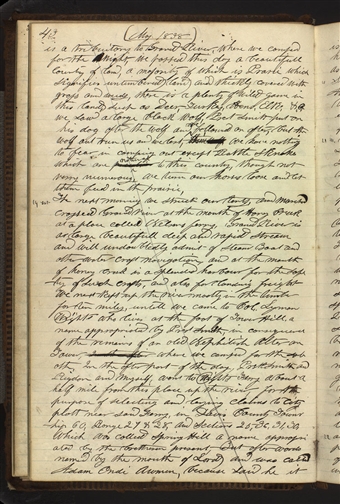 43 (May 1838
is a tributary to Grand River, where we camped
for the Night we passed this day a beautifull
County of land, a majority of which is Prarie which
signifies untimbered land and thickly covered with
grass and weeds, there is a plenty of wild game in
this land, such as Deer, Turkey, Hens, Elk, &c.
we saw a large black Wolf, Prest Smith put on
his dog after the Wolf and we followed on after, but the
wolf out run us and we lost We have nothing
to fear in camping out except Rattle Snakes
which are natural to this country, though not
very numerous, we turn our Horses loose and let
them feed in the prairie
The next morning we struck our tents, and marched
crossed Grand River at the mouth of Honey Creek
at a place called Nelsons ferry, Grand River is
a large beautifull deep and rapid stream
and will undoubtedly admit of Steam Boat and
other water craft navigation, and at the mouth
of honey creek is a splendid harbour for the safe
ty of such crafts, and also for landing freight
We next kept up the river mostly in the timber
for ten miles, untill we came to Col. Lyman
Wight's who lives at the foot of Tower Hill, a
name appropriated by Prest Smith, in consequence
of the remains of an old Nephitish Alter or
Tower, where we camped for the sab-
bath, In the after part of the day, Prests Smith and
Rigdon and myself, went to Wights Ferry about a
half mile from this place up the river for the
purpose of selecting and laying claims to City
plott near said Ferry, in Davis County Town-
ship 60, Range 27 & 28, and Sections 25, 36, 31, 30,
Which was called Spring Hill a name appropri
ated by the brethren present, But afterwards
named by the mouth of Lord and was called
Adam Ondi Awmen, because said he it